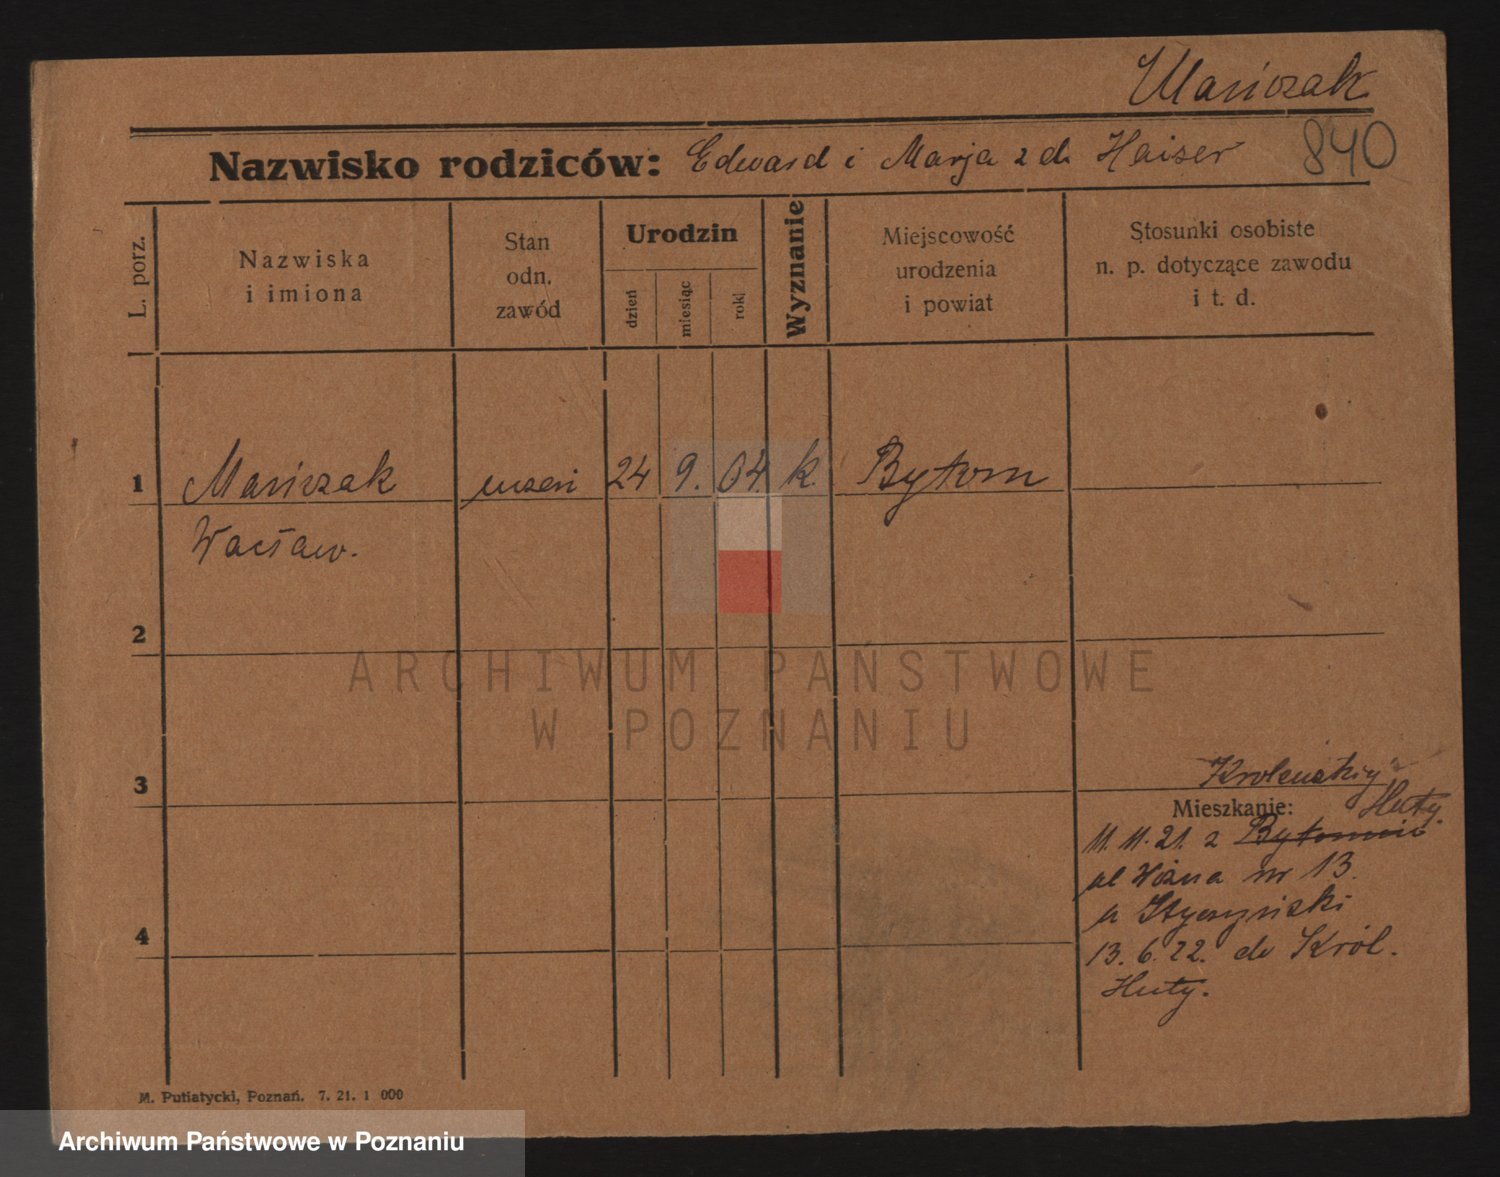 Mańczak
Nazwisko rodziców: Edward i Marja z d. Haiser
840
L. porz.
Nazwiska
i imiona
Stan
odn.
zawód
Urodzin
dzień
miesiąc
rok
Wyznanie
Miejscowość
urodzenia
i powiat
Stosunki osobiste
n. p. dotyczące zawodu
i t. d.
1 Mańczak uczeń 24 9. 04. k. Bytom
Wacław.
2
ARCHIWUM PAŃSTWOWE
W POZNANIU
3
Mieszkanie:
Huty.
11. 11. 21. z Bytomia
ul Woźna nr 13.
u Styczyński
4
13. 6. 22. do Król.
Huty.
M. Putiatycki, Poznań. 7. 21. 1 000
Archiwum Państwowe w Poznaniu